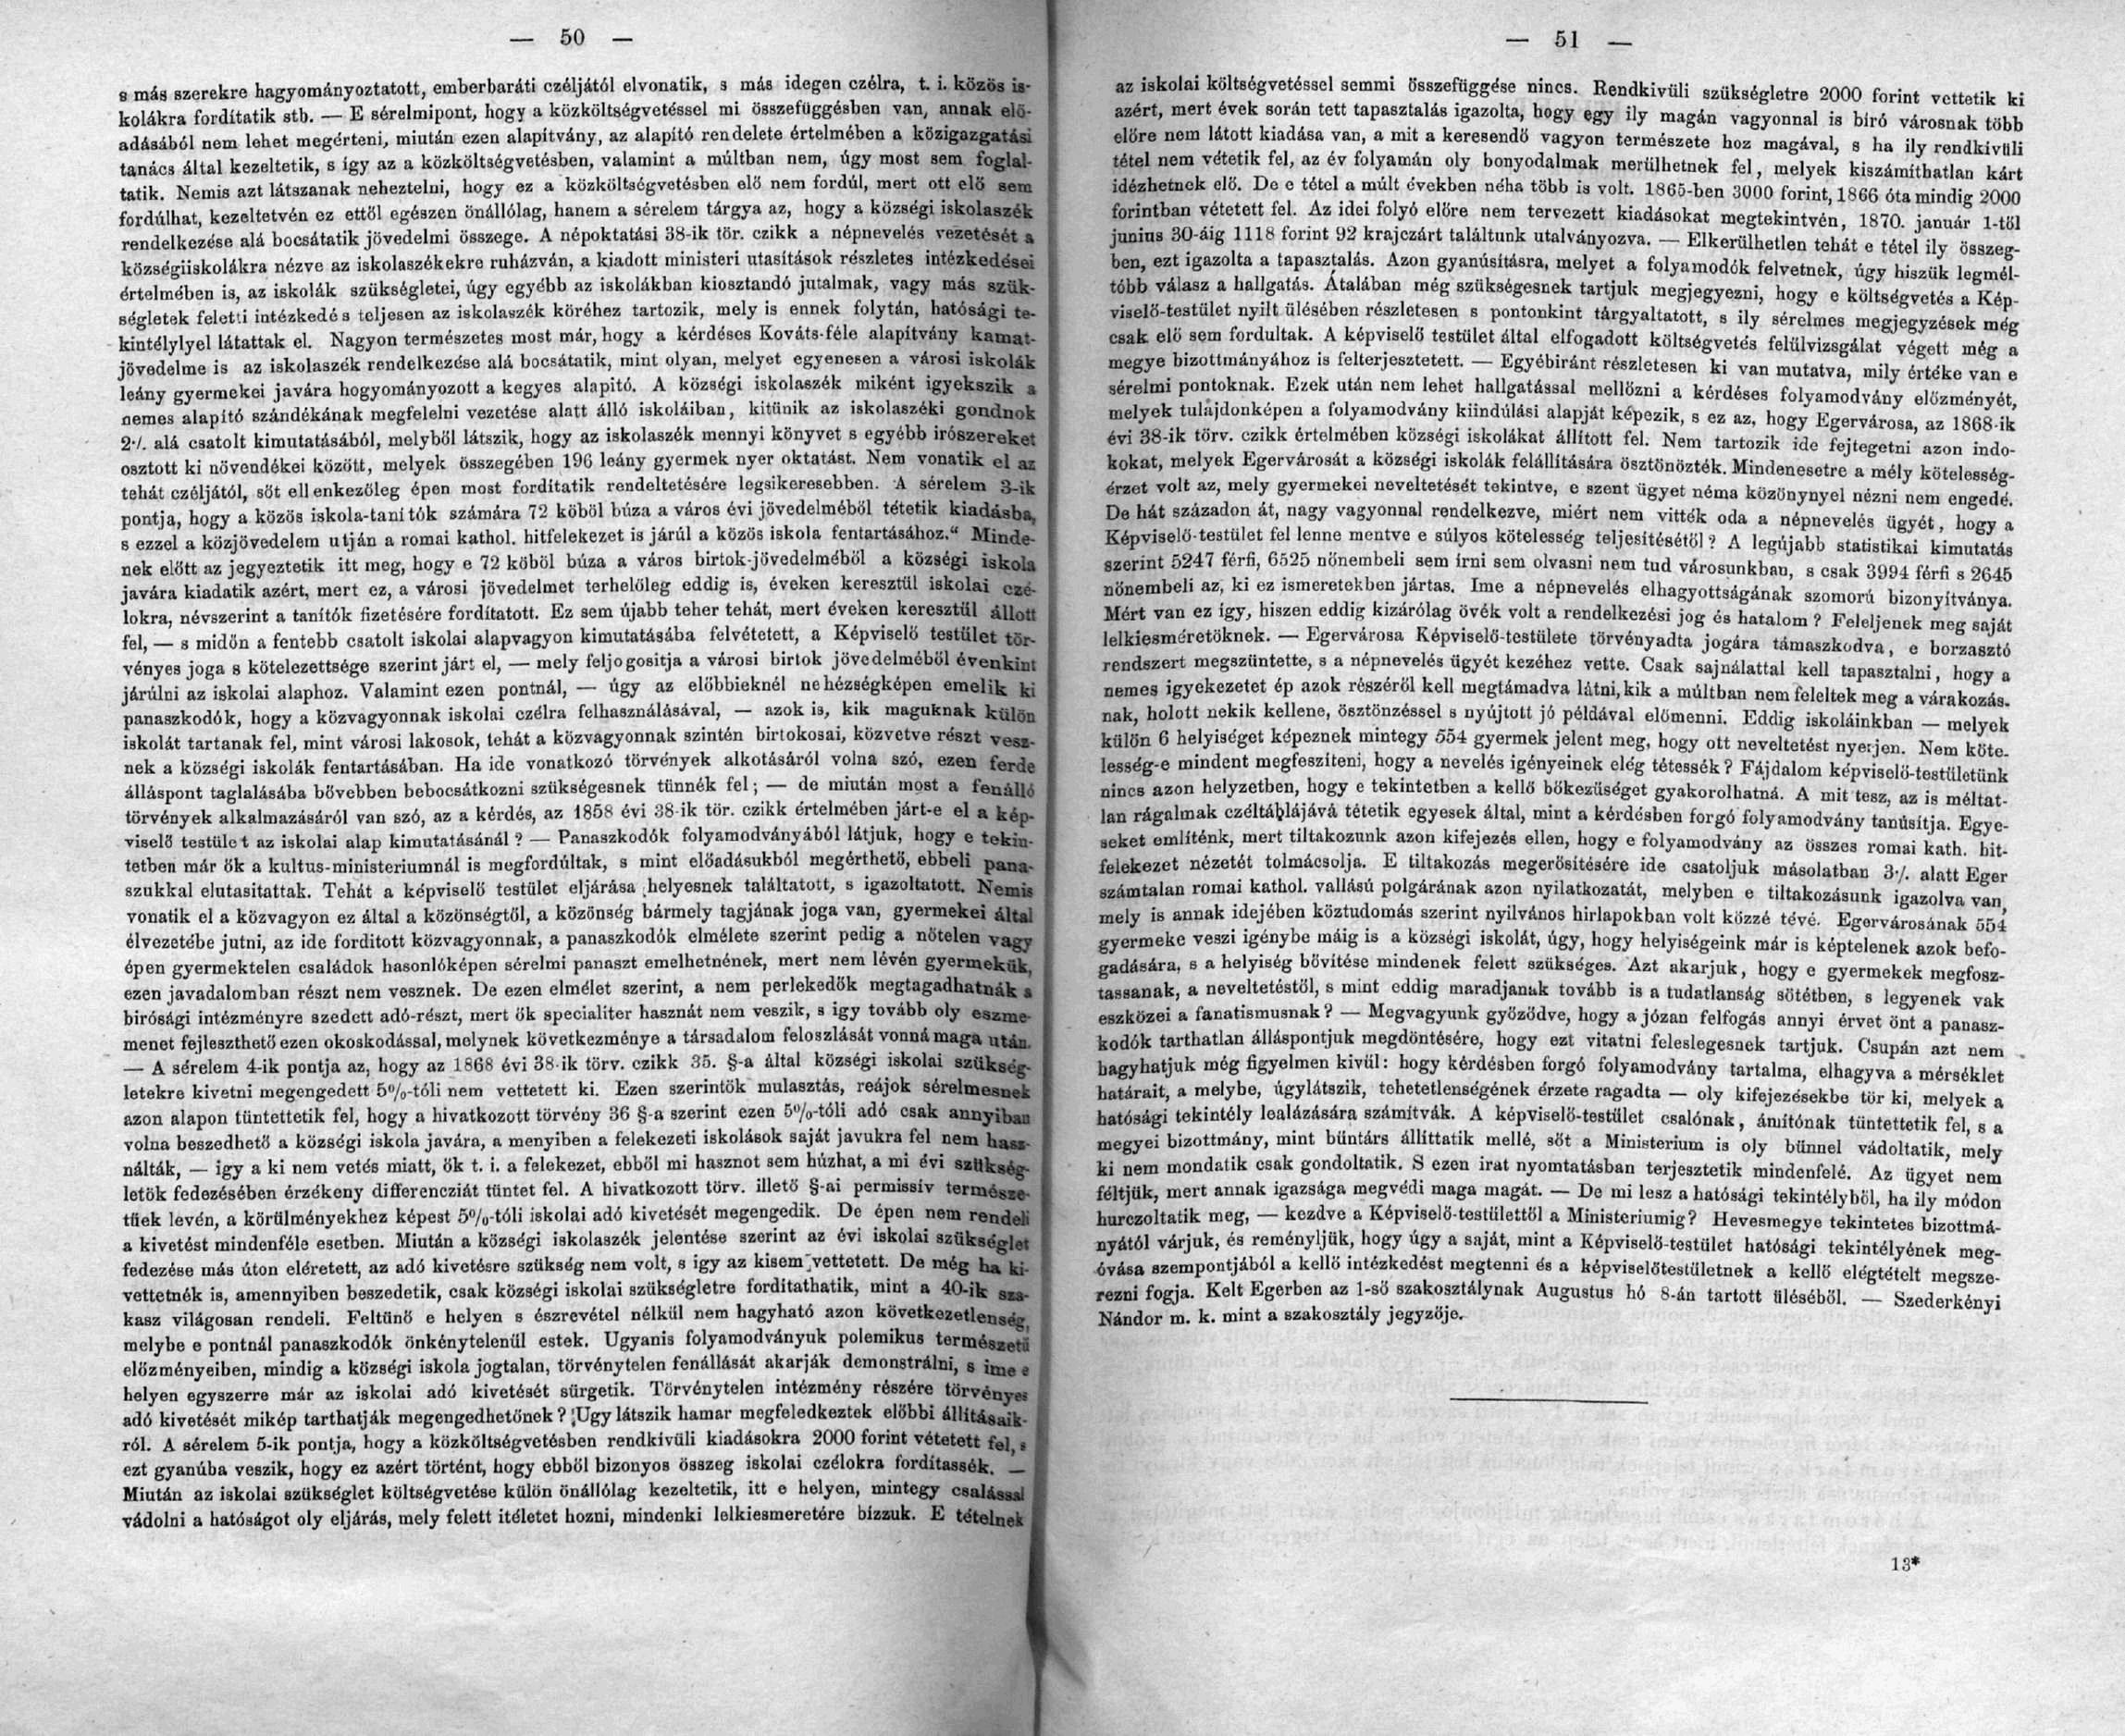 — 50 —
s más szerekre hagyományoztatott, emberbaráti czéljától elvonatik, s más idegen czélra, t. i. közös is-
kolákra fordítatik stb. — E sérelmipont, hogy a közköltségvetéssel mi összefüggésben van, annak elő-
adásából nem lehet megérteni, miután ezen alapítvány, az alapító rendelete értelmében a közigazgatási
tanács által kezeltetik, s így az a közköltségvetésben, valamint a múltban nem, úgy most sem foglal-
tatik. Nemis azt látszanak neheztelni, hogy ez a közköltségvetésben elő nem fordúl, mert ott elő sem
fordúlhat, kezeltetvén ez ettől egészen önállólag, hanem a sérelem tárgya az, hogy a községi iskolaszék
rendelkezése alá bocsátatik jövedelmi összege. A népoktatási 38-ik tör. czikk a népnevelés vezetését a
községiiskolákra nézve az iskolaszékekre ruházván, a kiadott ministeri utasítások részletes intézkedései
értelmében is, az iskolák szükségletei, úgy egyébb az iskolákban kiosztandó jutalmak, vagy más szük-
ségletek feletti intézkedés teljesen az iskolaszék köréhez tartozik, mely is ennek folytán, hatósági te-
kintélylyel látattak el. Nagyon természetes most már, hogy a kérdéses Kováts-féle alapítvány kamat-
jövedelme is az iskolaszék rendelkezése alá bocsátatik, mint olyan, melyet egyenesen a városi iskolák
leány gyermekei javára hogyományozott a kegyes alapitó. A községi iskolaszék miként igyekszik a
nemes alapító szándékának megfelelni vezetése alatt álló iskoláiban, kitünik az iskolaszéki gondnok
2·/. alá csatolt kimutatásából, melyből látszik, hogy az iskolaszék mennyi könyvet s egyébb irószereket
osztott ki növendékei között, melyek összegében 196 leány gyermek nyer oktatást. Nem vonatik el az
tehát czéljától, sőt ellenkezőleg épen most fordítatik rendeltetésére legsikeresebben. A sérelem 3-ik
pontja, hogy a közös iskola-tanítók számára 72 köböl búza a város évi jövedelméből tétetik kiadásba,
s ezzel a közjövedelem utján a romai kathol. hitfelekezet is járúl a közös iskola fentartásához.“ Minde-
nek előtt az jegyeztetik itt meg, hogy e 72 köböl búza a város birtok-jövedelméből a községi iskola
javára kiadatik azért, mert ez, a városi jövedelmet terhelőleg eddig is, éveken keresztül iskolai czé-
lokra, névszerint a tanítók fizetésére fordítatott. Ez sem újabb teher tehát, mert éveken keresztül állott
fel, — s midőn a fentebb csatolt iskolai alapvagyon kimutatásába felvétetett, a Képviselő testület tör-
vényes joga s kötelezettsége szerint járt el, — mely feljogosítja a városi birtok jövedelméből évenkint
járúlni az iskolai alaphoz. Valamint ezen pontnál, — úgy az előbbieknél nehézségképen emelik ki
panaszkodók, hogy a közvagyonnak iskolai czélra felhasználásával, — azok is, kik maguknak külön
iskolát tartanak fel, mint városi lakosok, tehát a közvagyonnak szintén birtokosai, közvetve részt vesz-
nek a községi iskolák fentartásában. Ha ide vonatkozó törvények alkotásáról volna szó, ezen ferde
álláspont taglalásába bővebben bebocsátkozni szükségesnek tünnék fel; — de miután most a fenálló
törvények alkalmazásáról van szó, az a kérdés, az 1858 évi 38-ik tör. czikk értelmében járt-e el a kép-
viselő testület az iskolai alap kimutatásánál? — Panaszkodók folyamodványából látjuk, hogy e tekin-
tetben már ők a kultus-ministeriumnál is megfordúltak, s mint előadásukból megérthető, ebbeli pana-
szukkal elutasitattak. Tehát a képviselő testület eljárása helyesnek találtatott, s igazoltatott. Nemis
vonatik el a közvagyon ez által a közönségtől, a közönség bármely tagjának joga van, gyermekei által
élvezetébe jutni, az ide fordított közvagyonnak, a panaszkodók elmélete szerint pedig a nőtelen vagy
épen gyermektelen családok hasonlóképen sérelmi panaszt emelhetnének, mert nem lévén gyermekük,
ezen javadalomban részt nem vesznek. De ezen elmélet szerint, a nem perlekedők megtagadhatnák a
birósági intézményre szedett adó-részt, mert ők specialiter hasznát nem veszik, s igy tovább oly eszme-
menet fejleszthető ezen okoskodással, melynek következménye a társadalom feloszlását vonná maga után.
— A sérelem 4-ik pontja az, hogy az 1868 évi 38-ik törv. czikk 35. §-a által községi iskolai szükség-
letekre kivetni megengedett 5%-tóli nem vettetett ki. Ezen szerintök mulasztás, reájok sérelmesnek
azon alapon tüntettetik fel, hogy a hivatkozott törvény 36 §-a szerint ezen 5%-tóli adó csak annyiban
volna beszedhető a községi iskola javára, a menyiben a felekezeti iskolások saját javukra fel nem hasz-
nálták, — igy a ki nem vetés miatt, ők t. i. a felekezet, ebből mi hasznot sem húzhat, a mi évi szükség-
letök fedezésében érzékeny differencziát tüntet fel. A hivatkozott törv. illető §-ai permissiv természe-
tüek levén, a körülményekhez képest 5%-tóli iskolai adó kivetését megengedik. De épen nem rendeli
a kivetést mindenféle esetben. Miután a községi iskolaszék jelentése szerint az évi iskolai szükséglet
fedezése más úton eléretett, az adó kivetésre szükség nem volt, s igy az kisem vettetett. De még ha ki-
vettetnék is, amennyiben beszedetik, csak községi iskolai szükségletre fordítathatik, mint a 40-ik sza-
kasz világosan rendeli. Feltünő e helyen s észrevétel nélkül nem hagyható azon következetlenség,
melybe e pontnál panaszkodók önkénytelenül estek. Ugyanis folyamodványuk polemikus természetű
előzményeiben, mindig a községi iskola jogtalan, törvénytelen fenállását akarják demonstrálni, s ime e
helyen egyszerre már az iskolai adó kivetését sürgetik. Törvénytelen intézmény részére törvényes
adó kivetését mikép tarthatják megengedhetőnek? Ugy látszik hamar megfeledkeztek előbbi állításaik-
ról. A sérelem 5-ik pontja, hogy a közköltségvetésben rendkivüli kiadásokra 2000 forint vétetett fel, s
ezt gyanúba veszik, hogy ez azért történt, hogy ebből bizonyos összeg iskolai czélokra fordítassék. —
Miután az iskolai szükséglet költségvetése külön önállólag kezeltetik, itt e helyen, mintegy csalással
vádolni a hatóságot oly eljárás, mely felett itéletet hozni, mindenki lelkiesmeretére bízzuk. E tételnek
— 51 —
az iskolai költségvetéssel semmi összefüggése nincs. Rendkivüli szükségletre 2000 forint vettetik ki
azért, mert évek során tett tapasztalás igazolta, hogy egy ily magán vagyonnal is biró városnak több
előre nem látott kiadása van, a mit a keresendő vagyon természete hoz magával, s ha ily rendkivüli
tétel nem vétetik fel, az év folyamán oly bonyodalmak merülhetnek fel, melyek kiszámíthatlan kárt
idézhetnek elő. De e tétel a múlt években néha több is volt. 1865-ben 3000 forint, 1866 óta mindig 2000
forintban vétetett fel. Az idei folyó előre nem tervezett kiadásokat megtekintvén, 1870. január 1-től
junius 30-áig 1118 forint 92 krajczárt találtunk utalványozva. — Elkerülhetlen tehát e tétel ily összeg-
ben, ezt igazolta a tapasztalás. Azon gyanúsításra, melyet a folyamodók felvetnek, úgy hiszük legmél-
tóbb válasz a hallgatás. Átalában még szükségesnek tartjuk megjegyezni, hogy e költségvetés a Kép-
viselő-testület nyilt ülésében részletesen s pontonkint tárgyaltatott, s ily sérelmes megjegyzések még
csak elő sem fordultak. A képviselő testület által elfogadott költségvetés felülvizsgálat végett még a
megye bizottmányához is felterjesztetett. — Egyébiránt részletesen ki van mutatva, mily értéke van e
sérelmi pontoknak. Ezek után nem lehet hallgatással mellőzni a kérdéses folyamodvány előzményét,
melyek tulajdonképen a folyamodvány kiindúlási alapját képezik, s ez az, hogy Egervárosa, az 1868-ik
évi 38-ik törv. czikk értelmében községi iskolákat állított fel. Nem tartozik ide fejtegetni azon indo-
kokat, melyek Egervárosát a községi iskolák felállítására ösztönözték. Mindenesetre a mély kötelesség-
érzet volt az, mely gyermekei neveltetését tekintve, e szent ügyet néma közönynyel nézni nem engedé.
De hát századon át, nagy vagyonnal rendelkezve, miért nem vitték oda a népnevelés ügyét, hogy a
Képviselő-testület fel lenne mentve e súlyos kötelesség teljesítésétől? A legújabb statistikai kimutatás
szerint 5247 férfi, 6525 nőnembeli sem írni sem olvasni nem tud városunkban, s csak 3994 férfi s 2645
nőnembeli az, ki ez ismeretekben jártas. Ime a népnevelés elhagyottságának szomorú bizonyítványa.
Mért van ez igy, hiszen eddig kizárólag övék volt a rendelkezési jog és hatalom? Feleljenek meg saját
lelkiesméretöknek. — Egervárosa Képviselő-testülete törvényadta jogára támaszkodva, e borzasztó
rendszert megszüntette, s a népnevelés ügyét kezéhez vette. Csak sajnálattal kell tapasztalni, hogy a
nemes igyekezetet ép azok részéről kell megtámadva látni, kik a múltban nem feleltek meg a várakozás-
nak, holott nekik kellene, ösztönzéssel s nyújtott jó példával előmenni. Eddig iskoláinkban — melyek
külön 6 helyiséget képeznek mintegy 554 gyermek jelent meg, hogy ott neveltetést nyerjen. Nem köte-
lesség-e mindent megfeszíteni, hogy a nevelés igényeinek elég tétessék? Fájdalom képviselő-testületünk
nincs azon helyzetben, hogy e tekintetben a kellő bőkezüséget gyakorolhatná. A mit tesz, az is méltat-
lan rágalmak czéltáblájává tétetik egyesek által, mint a kérdésben forgó folyamodvány tanúsítja. Egye-
seket említénk, mert tiltakozunk azon kifejezés ellen, hogy e folyamodvány az összes romai kath. hit-
felekezet nézetét tolmácsolja. E tiltakozás megerősítésére ide csatoljuk másolatban 3·/. alatt Eger
számtalan romai kathol. vallású polgárának azon nyilatkozatát, melyben e tiltakozásunk igazolva van,
mely is annak idejében köztudomás szerint nyilvános hirlapokban volt közzé tévé. Egervárosának 554
gyermeke veszi igénybe máig is a községi iskolát, úgy, hogy helyiségeink már is képtelenek azok befo-
gadására, s a helyiség bővítése mindenek felett szükséges. Azt akarjuk, hogy e gyermekek megfosz-
tassanak, a neveltetéstől, s mint eddig maradjanak tovább is a tudatlanság sötétben, s legyenek vak
eszközei a fanatismusnak? — Megvagyunk győződve, hogy a józan felfogás annyi érvet önt a panasz-
kodók tarthatlan álláspontjuk megdöntésére, hogy ezt vitatni feleslegesnek tartjuk. Csupán azt nem
hagyhatjuk még figyelmen kivül: hogy kérdésben forgó folyamodvány tartalma, elhagyva a mérséklet
határait, a melybe, úgylátszik, tehetetlenségének érzete ragadta — oly kifejezésekbe tör ki, melyek a
hatósági tekintély lealázására számítvák. A képviselő-testület csalónak, ámítónak tüntettetik fel, s a
megyei bizottmány, mint büntárs állíttatik mellé, sőt a Ministerium is oly bünnel vádoltatik, mely
ki nem mondatik csak gondoltatik. S ezen irat nyomtatásban terjesztetik mindenfelé. Az ügyet nem
féltjük, mert annak igazsága megvédi maga magát. — De mi lesz a hatósági tekintélyből, ha ily módon
hurczoltatik meg, — kezdve a Képviselő-testülettől a Ministeriumig? Hevesmegye tekintetes bizottmá-
nyától várjuk, és reményljük, hogy úgy a saját, mint a Képviselő-testület hatósági tekintélyének meg-
óvása szempontjából a kellő intézkedést megtenni és a képviselőtestületnek a kellő elégtételt megsze-
rezni fogja. Kelt Egerben az 1-ső szakosztálynak Augustus hó 8-án tartott üléséből. — Szederkényi
Nándor m. k. mint a szakosztály jegyzője.
13*